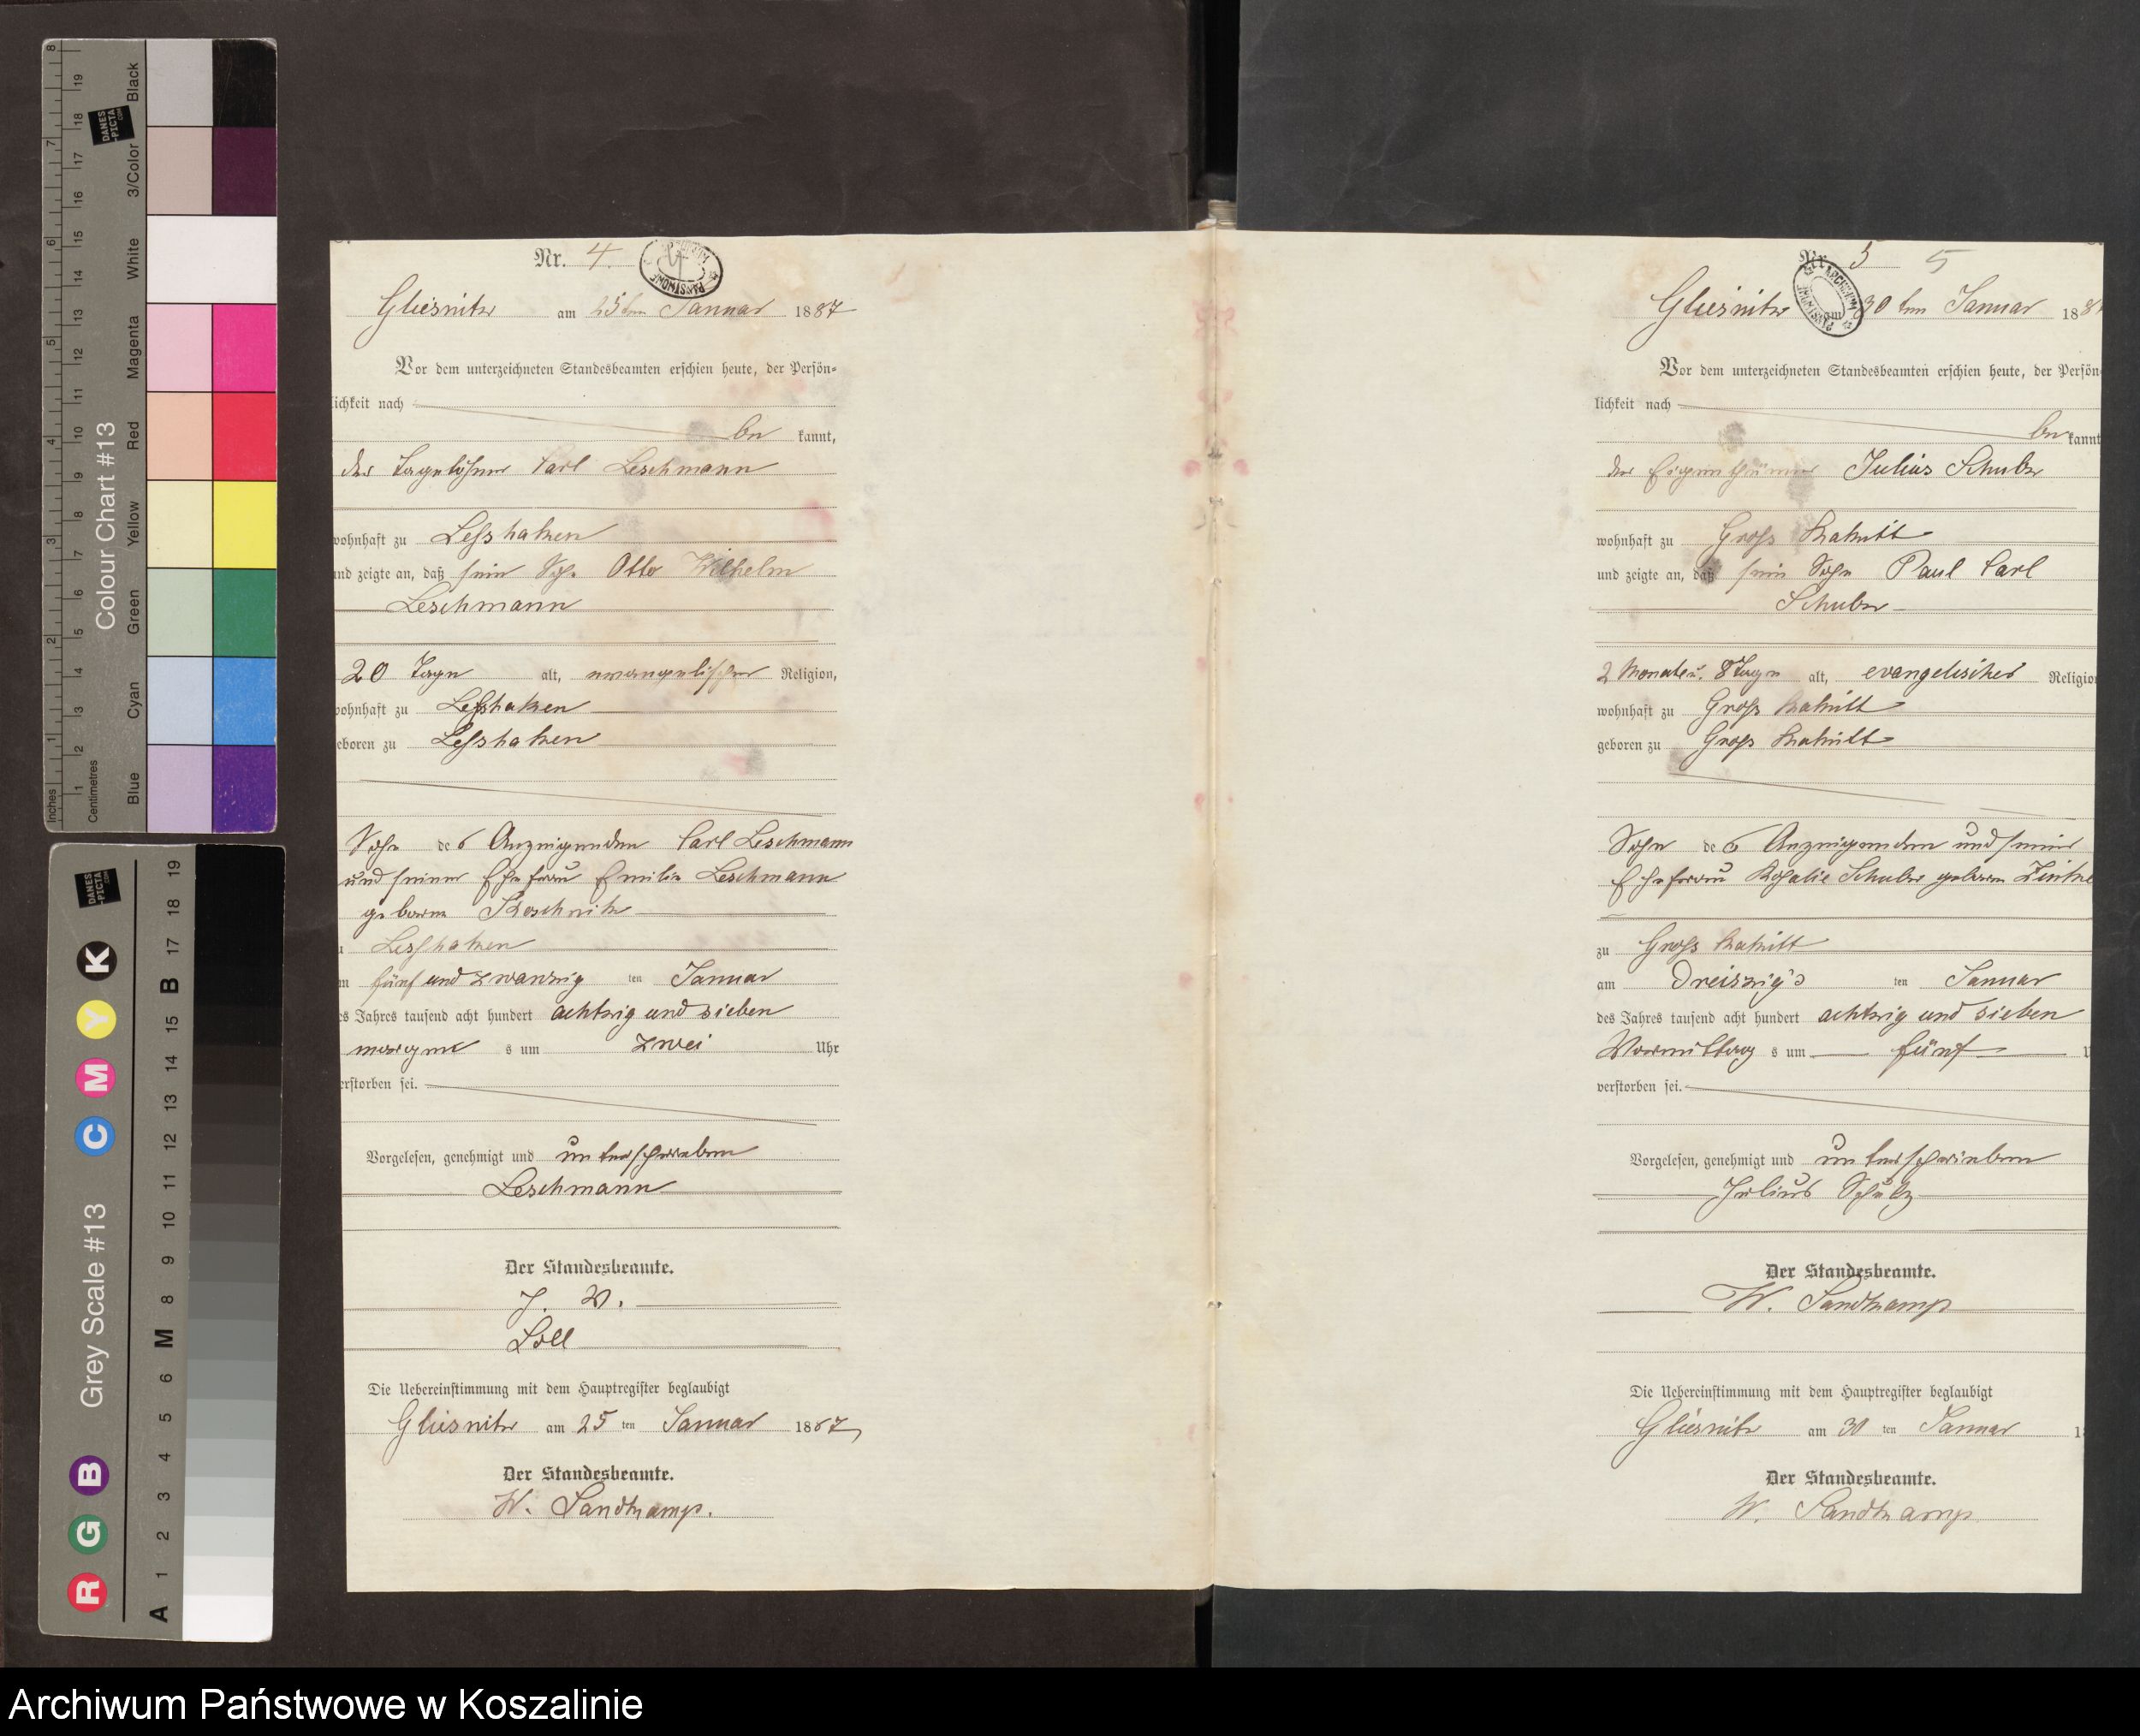 Nr. 4.
Gliesnitz am 25ten Januar 1887
Vor dem unterzeichneten Standesbeamten erschien heute, der Persön-
lichkeit nach
be kannt,
der Tagelöhner Carl Leschmann
wohnhaft zu
und zeigte an, daß sein Sohn Otto Wilhelm
Leschmann
20 Tage alt, evangelischer Religion,
wohnhaft zu
geboren zu
Sohn des Anzeigenden Carl Leschmann
und seiner Ehefrau Emilie Leschmann
geborne
fünf und zwanzig ten Januar
des Jahres tausend acht hundert achtzig und sieben
morgens um zwei Uhr
verstorben sei.
Vorgelesen, genehmigt und unterschrieben
Leschmann
Der Standesbeamte.
J. V.
Loll
Die Uebereinstimmung mit dem Hauptregister beglaubigt
Gliesnitz am 25 ten Januar 1887
Der Standesbeamte.
W. Sandkamp.
Nr. 5 5
Gliesnitz am 30ten Januar 188
Vor dem unterzeichneten Standesbeamten erschien heute, der Persön
lichkeit nach
be kannt
der Eigenthümer Julius Schulz
wohnhaft zu Gross
und zeigte an, daß sein Sohn Paul Carl
Schulz
2 Monate u. 8 Tage alt, evangelischer Religio
wohnhaft zu Gross
geboren zu Gross
Sohn des Anzeigenden und seiner
Ehefrau Rosalie Schulz geborne
zu Gross
am Dreiszigs ten Januar
des Jahres tausend acht hundert achtzig und sieben
Vormittags um fünf U
verstorben sei.
Vorgelesen, genehmigt und unterschrieben
Julius Schulz
Der Standesbeamte.
W. Sandkamp
Die Uebereinstimmung mit dem Hauptregister beglaubigt
Gliesnitz am 30 ten Januar 18
Der Standesbeamte.
W. Sandkamp
Colour Chart #13
Blue Cyan Green Yellow Red Magenta White 3/Color Black
Inches
Centimetres
DANES
-PICTA
.COM
Grey Scale #13
R G B C M Y K
A 1 2 3 4 5 6 M 8 9 10 11 12 13 14 15 B 17 18 19
Archiwum Państwowe w Koszalinie